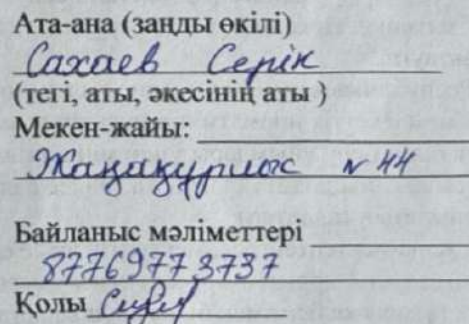 Ата-ана (заңды өкілі)
Сахаев Серік
(тегі, аты, әкесінің аты )
Мекен-жайы:
Жаңақұрлыс № 44
Байланыс мәліметтері
87769773737
Қолы